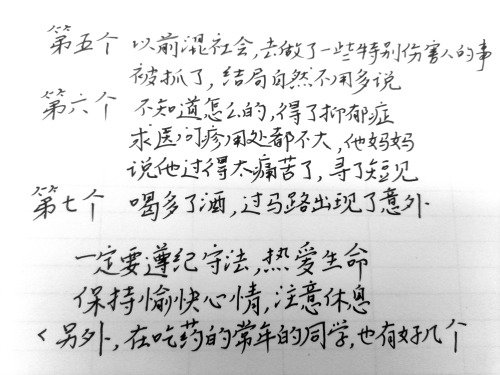 第五个 以前混社会,去做了一些特别伤害人的事
被抓了,结局自然不用多说
第六个 不知道怎么的,得了抑郁症
求医问疹用处都不大,他妈妈
说他过得太痛苦了,寻了短见
第七个 喝多了酒,过马路出现了意外
一定要遵纪守法,热爱生命
保持愉快心情,注意休息
<另外,在吃药的常年的同学,也有好几个